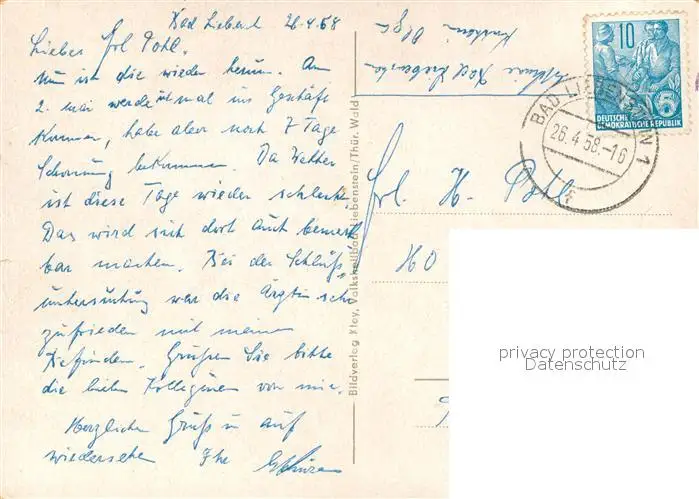 Bad Liebenst 26.4.58
Liebes Frl Pohl.
Nun ist die wieder herum. Am
2. Mai werde ich mal ins Geschäft
kommen, habe aber noch 7 Tage
Schonung bekommen. Das Wetter
ist diese Tage wieder schlecht.
Das wird sich dort auch bemerk
bar machen. Bei der Schluß
untersuchung war die Ärztin sehr
zufrieden mit meinem
Befinden. Grüßen Sie bitte
die lieben Kolleginen von mir.
Herzlichen Gruß u auf
wiedersehn Ihr
Bildverlag Kloy, Volksheilbad Liebenstein/Thür. Wald
Olga
Bad Liebenstein
10
DEUTSCHE
DEMOKRATISCHE REPUBLIK
BAD LIEBENSTEIN 1
26.4.58.-16
Frl. H. Pohl
HO
privacy protection
Datenschutz